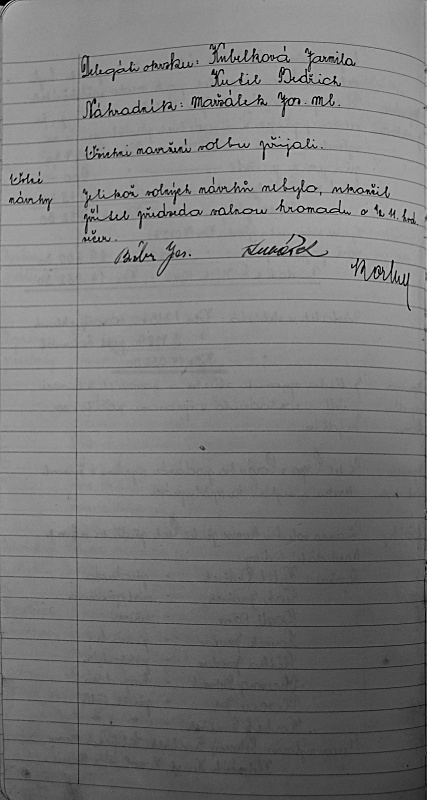 Delegáti okrsku: Kubelková Jarmila
Kutil Bedřich
Náhradník: Maršálek Jos. ml.
Všichni navržení volbu přijali.
Volné
návrhy
Jelikož volných návrhů nebylo, ukončil
přítel předseda valnou hromadu o ½ 11. hod.
večer.
Jos.